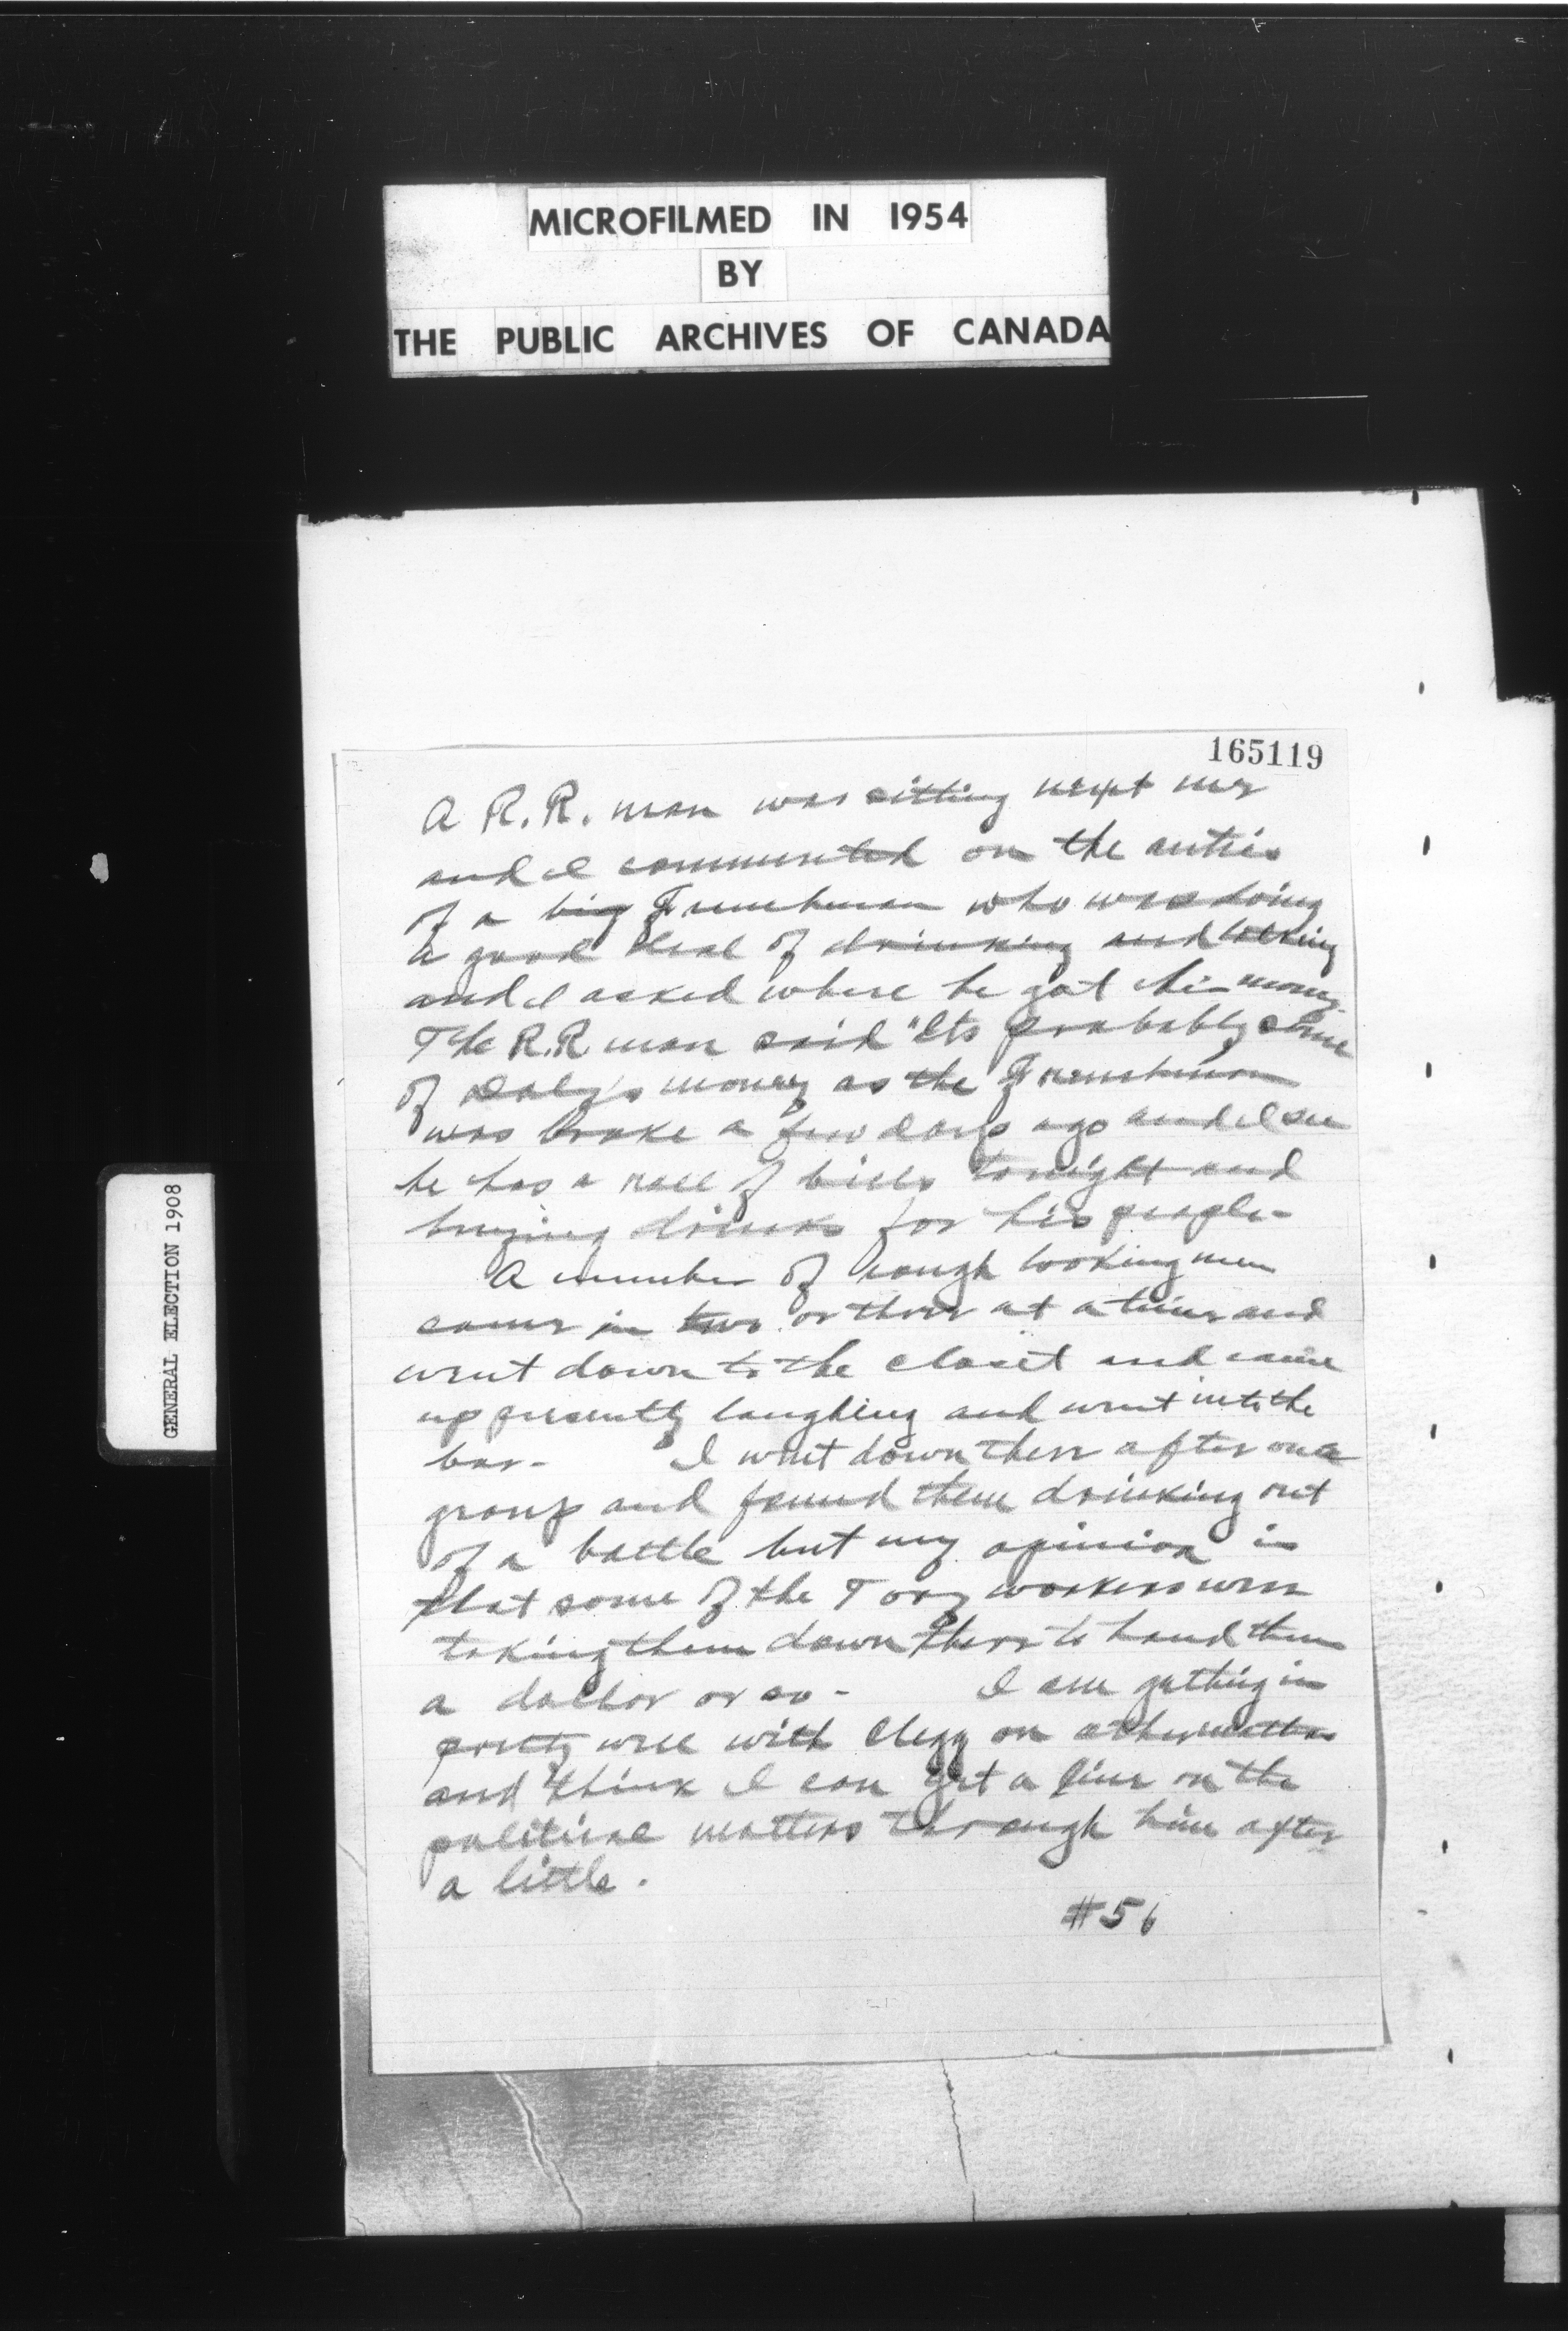 MICROFILMED IN 1954
BY
THE PUBLIC ARCHIVES OF CANADA
GENERAL ELECTION 1908
165119
A R.R. man was sitting next me
and I commented on the antics
of a big Frenchman who was doing
a good deal of drinking and talking
and I asked where he got his money.
The R.R. man said "Its probably some
of Daly's money as the Frenchman
was broke a few days ago and I see
he has a roll of bills tonight and
buying drinks for his people-
A number of rough looking men
came in two or three at a time and
went down to the closet and came
up presently laughing and went into the
bar- I went down there after one
group and found them drinking out
of a bottle but my opinion is
that some of the Tory workers were
taking them down there to hand them
a dollar or so - I am getting in
pretty well with Clegg on other matters
and think I can get a line on the
political matters through him after
a little.
#56